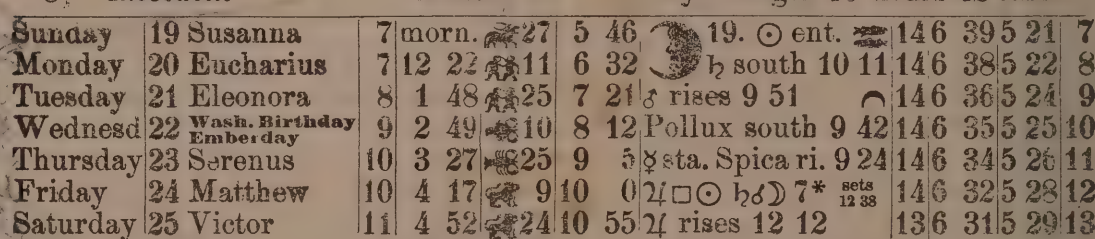 Sunday 19 Susanna 7 morn. 27 5 46 19. ☉ ent. ♒ 14 6 39 5 21 7
Monday 20 Eucharius 7 12 22 11 6 32 ♄ south 10 11 14 6 38 5 22 8
Tuesday 21 Eleonora 8 1 48 25 7 21 ♂ rises 9 51 14 6 36 5 24 9
Wednesd 22 Wash. Birthday Emberday 9 2 49 10 8 12 Pollux south 9 42 14 6 35 5 25 10
Thursday 23 Serenus 10 3 27 25 9 5 ☿ sta. Spica ri. 9 24 14 6 34 5 26 11
Friday 24 Matthew 10 4 17 9 10 0 ♃□☉ ♄☌☽ 7* sets 12 38 14 6 32 5 28 12
Saturday 25 Victor 11 4 52 24 10 55 ♃ rises 12 12 13 6 31 5 29 13